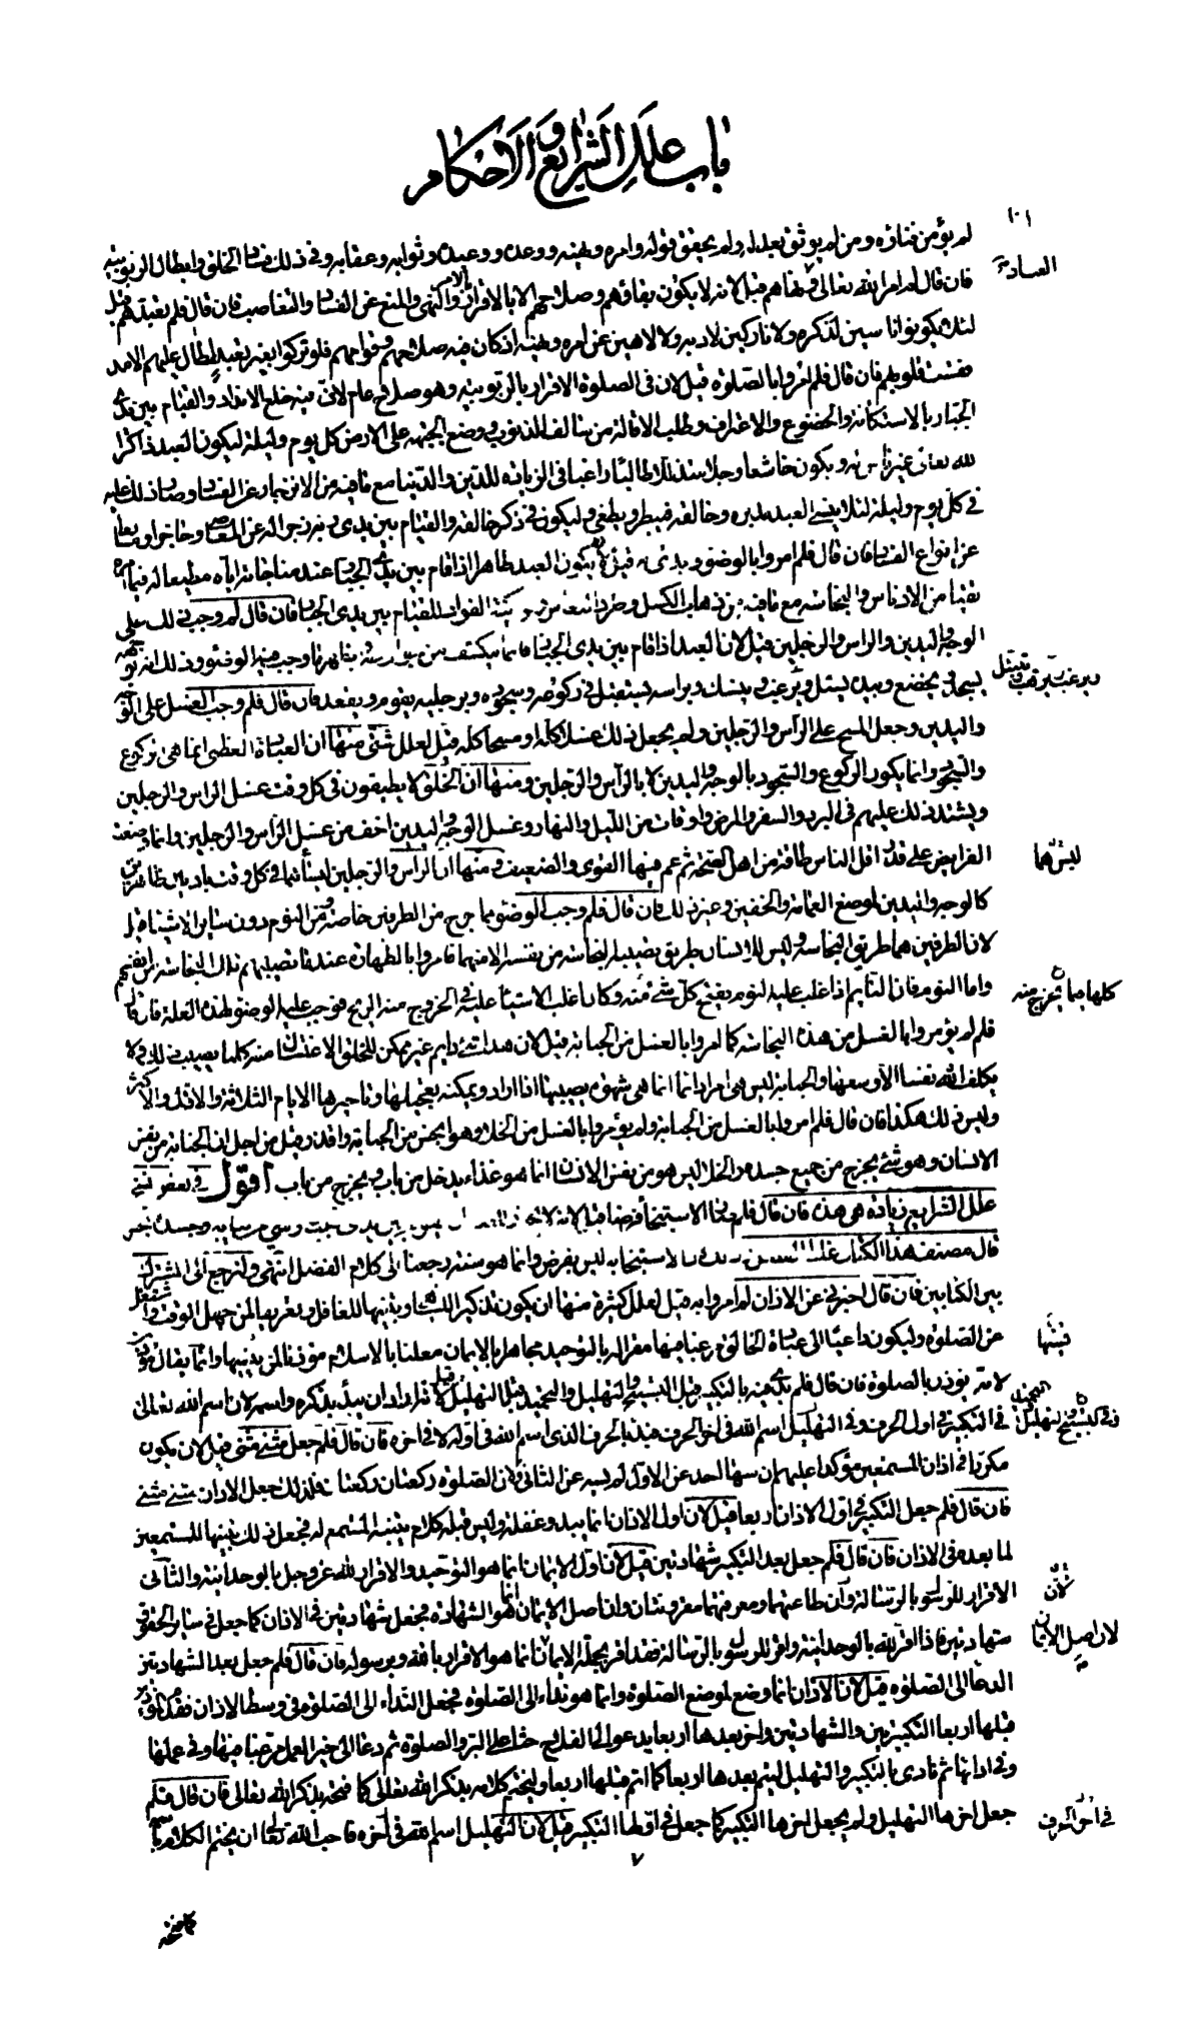 باب علل الشرايع و الاحكام
١٠١
لم يؤمن فناؤه ومن لم يوثق بعدله ولم يحقق قوله وامره ونهيه ووعده ووعيده وثوابه وعقابه وفى ذلك فساد الخلق وابطال الربوبية
فان قال لم امر الله تعالى ونهاهم قيل لانه لا يكون بقاؤهم وصلاحهم الا بالامر والنهى والمنع عن الفساد والتغاصب فان قال فلم تعبدهم قيل
لئلا يكونوا ناسين لذكره ولا تاركين لادبه ولا لاهين عن امره ونهيه اذ كان فيه صلاحهم وقوامهم فلو تركوا بغير تعبد لطال عليهم الامد
فقست قلوبهم فان قال فلم امروا بالصلوة قيل لان فى الصلوة الاقرار بالربوبية وهو صلاح عام لان فيه خلع الانداد والقيام بين يدى
الجبار بالاستكانة والخضوع والاعتراف وطلب الاقالة من سالف الذنوب ووضع الجبهة على الارض كل يوم وليلة ليكون العبد ذاكرا
لله تعالى غير ناس له ويكون خاشعا وجلا متذللا طالبا راغبا فى الزيادة للدين والدنيا مع ما فيه من الانزجار عن الفساد وصار ذلك عليه
فى كل يوم وليلة لئلا ينسى العبد مدبره وخالقه فيبطر ويطغى وليكون فى ذكر خالقه والقيام بين يدى ربه زجرا له عن المعاصى وحاجزا ومانعا
عن انواع الفساد فان قال فلم امروا بالوضوء وبدئ به قيل لان يكون العبد طاهرا اذا قام بين يدى الجبار عند مناجاته اياه مطيعا له فيما امره
نقيا من الادناس والنجاسة مع ما فيه من ذهاب الكسل وطرد النعاس وتزكية الفؤاد للقيام بين يدى الجبار فان قال لم وجب ذلك على
الوجه واليدين والراس والرجلين قيل لان العبد اذا قام بين يدى الجبار فانما ينكشف من جوارحه ويظهر ما وجب فيه الوضوء وذلك انه بوجهه
يسجد ويخضع وبيده يسئل ويرغب ويرهب ويتبتل وبراسه يستقبل فى ركوعه وسجوده وبرجليه يقوم ويقعد فان قال فلم وجب الغسل على الوجه
واليدين وجعل المسح على الرأس والرجلين ولم يجعل ذلك غسلا كله او مسحا كله قيل لعلل شتى منها ان العبادة العظمى انما هى الركوع
والسجود وانما يكون الركوع والسجود بالوجه واليدين لا بالرأس والرجلين ومنها ان الخلق لا يطيقون فى كل وقت غسل الراس والرجلين
ويشتد ذلك عليهم فى البرد والسفر والمرض واوقات من الليل والنهار وغسل الوجه واليدين اخف من غسل الرأس والرجلين وانما وضعت
الفرايض على قدر اقل الناس طاقة من اهل الصحة ثم عم فيها القوى والضعيف ومنها ان الرأس والرجلين ليسا هما فى كل وقت باديين ظاهرين
كالوجه واليدين لموضع العمامة والخفين وغير ذلك فان قال فلم وجب الوضوء مما خرج من الطرفين خاصة ومن النوم دون ساير الاشياء قيل
لان الطرفين هما طريق النجاسة وليس للانسان طريق تصيبه النجاسة من نفسه الا منهما فامروا بالطهارة عند ما تصيبهم تلك النجاسة من انفسهم
واما النوم فان النايم اذا غلب عليه النوم يفتح كل شىء منه وكان اغلب الاشياء عليه فى الخروج منه الريح فوجب عليه الوضوء لهذه العلة فان قال
فلم لم يؤمروا بالغسل من هذه النجاسة كما امروا بالغسل من الجنابة قيل لان هذا شىء دايم غير ممكن للخلق الاغتسال منه كلما يصيب ذلك ولا
يكلف الله نفسا الا وسعها والجنابة ليس هى امرا دائما انما هى شهوة يصيبها اذا اراد ويمكنه تعجيلها وتاخيرها الايام الثلاثة والاقل والاكثر
وليس ذلك هكذا فان قال فلم امروا بالغسل من الجنابة ولم يؤمروا بالغسل من الخلاء وهو انجس من الجنابة واقذر قيل من اجل ان الجنابة من نفس
الانسان وهو شىء يخرج من جميع جسده والخلاء ليس هو من نفس الانسان انما هو غذاء يدخل من باب ويخرج من باب اقول فى بعض نسخ
علل الشرايع زيادة هى هذه فان قال فلم صار الاستنجاء فرضا قيل لانه لا
قال مصنف هذا الكتاب غلط الفضل وذلك لان الاستنجاء به ليس بفرض وانما هو سنة رجعنا الى كلام الفضل انتهى ولنرجع الى المشترك
بين الكتابين فان قال اخبرنى عن الاذان لم امروا به قيل لعلل كثيرة منها ان يكون تذكيرا للساهى وتنبيها للغافل وتعريفا لمن جهل الوقت واشتغل
عن الصلوة وليكون داعيا الى عبادة الخالق مرغبا فيها مقرا له بالتوحيد مجاهرا بالايمان معلنا بالاسلام مؤذنا لمن ينسيها وانما يقال مؤذن
لانه يؤذن بالصلوة فان قال فلم بدئ فيه بالتكبير قبل التسبيح والتهليل والتحميد قيل لانه اراد ان يبدأ بذكره واسمه لان اسم الله تعالى
فى التكبير فى اول الحرف وفى التهليل اسم الله فى اخر الحرف فبدئ بالحرف الذى اسم الله فى اوله لا فى اخره فان قال فلم جعل مثنى مثنى قيل لان يكون
مكررا فى اذان المستمعين مؤكدا عليهم ان سها احد عن الاول لم يسه عن الثانى ولان الصلوة ركعتان ركعتان فلذلك جعل الاذان مثنى مثنى
فان قال فلم جعل التكبير فى اول الاذان اربعا قيل لان اول الاذان انما يبدء غفلة وليس قبله كلام يتنبه المستمع له فجعل ذلك تنبيها للمستمعين
لما بعده فى الاذان فان قال فلم جعل بعد التكبير شهادتين قيل لان اول الايمان انما هو التوحيد والاقرار لله عز وجل بالوحدانية والثانى
الاقرار للرسول بالرسالة وان طاعتهما ومعرفتهما مقرونتان وان اصل الايمان انما هو الشهادة فجعل شهادتين فى الاذان كما جعل فى ساير الحقوق
شهادتين فاذا اقر لله بالوحدانية واقر للرسول بالرسالة فقد اقر بجملة الايمان لان الايمان انما هو الاقرار بالله وبرسوله فان قال فلم جعل بعد الشهادتين
الدعاء الى الصلوة قيل لان الاذان انما وضع لموضع الصلوة وانما هو نداء الى الصلوة فجعل النداء الى الصلوة فى وسط الاذان فقدم المؤذن
قبلها اربعا التكبيرتين والشهادتين واخر بعدها اربعا يدعو الى الفلاح حثا على البر والصلوة ثم دعا الى خير العمل مرغبا فيها وفى عملها
وفى ادائها ثم نادى بالتكبير والتهليل ليتم بعدها اربعا كما اتم قبلها اربعا وليختم كلامه بذكر الله تعالى كما فتحه بذكر الله تعالى فان قال فلم
جعل اخرها التهليل ولم يجعل اخرها التكبير كما جعل فى اولها التكبير قيل لان التهليل اسم الله فى آخره فاحب الله تعالى ان يختم الكلام باسمه
٧
كما فتحه
العباد
ويرغب ويرهب ويتبتل
ليس هما
كلها مما يخرج منه
فيها
وفى التسبيح والتهليل والتحميد
لان
لان اصل الايمان
فى آخر الحرف